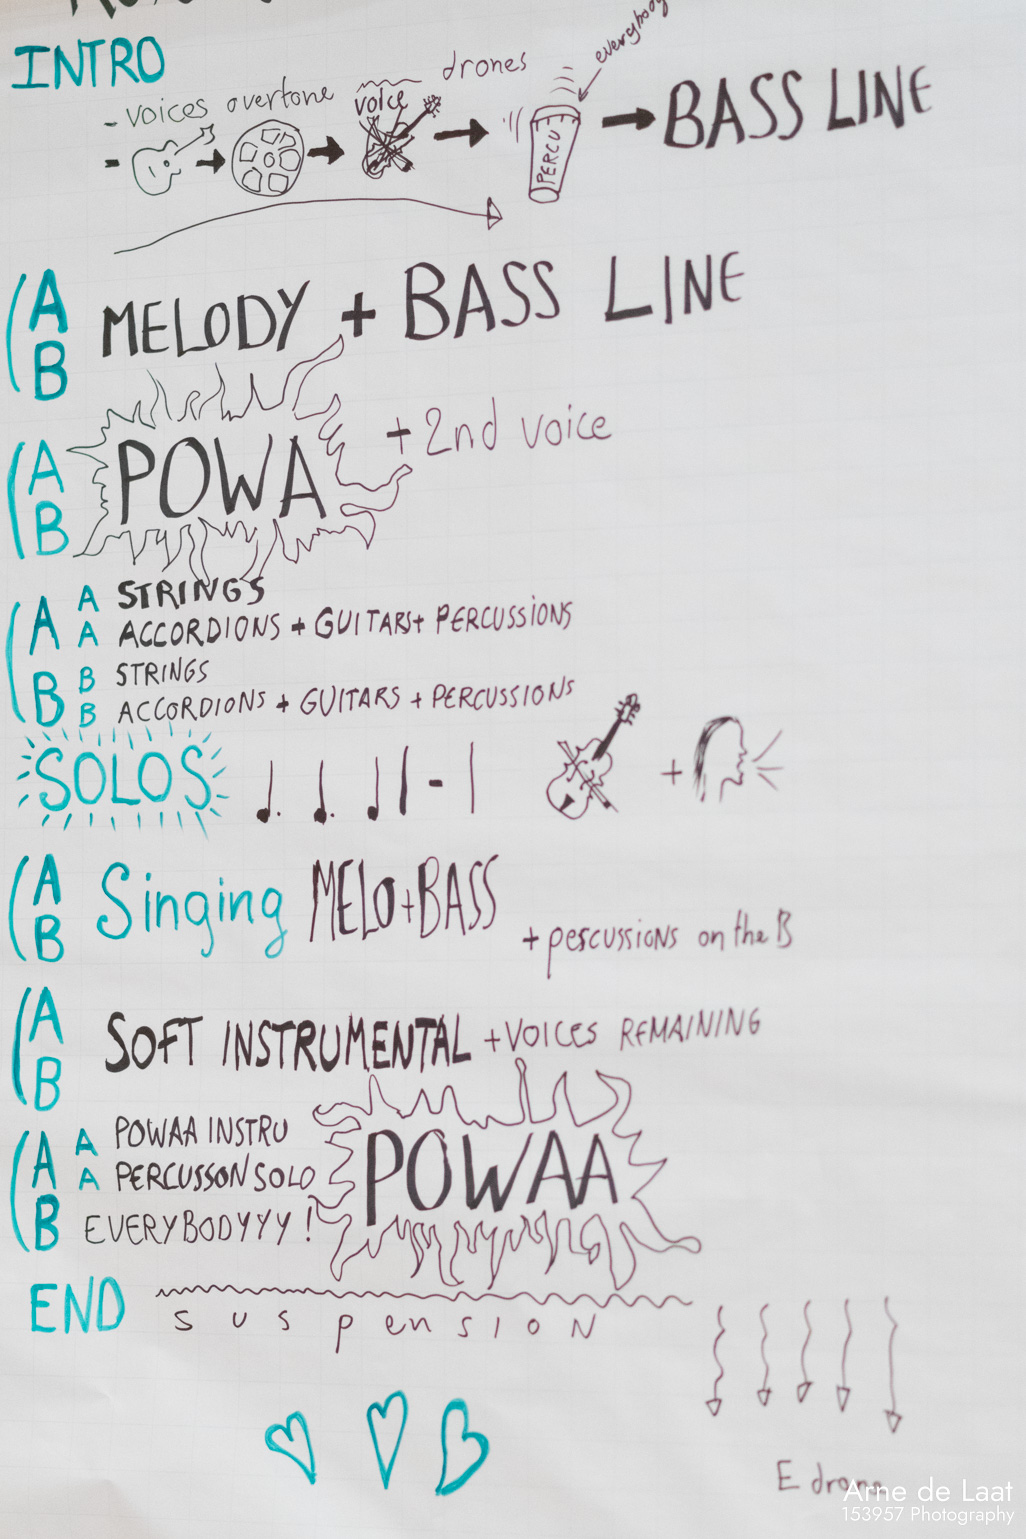 INTRO
everybody
- voices overtone voice drones
PERCU
BASS LINE
A
B
MELODY + BASS LINE
A
B
POWA + 2nd voice
A
B
A STRINGS
A ACCORDIONS + GUITARS + PERCUSSIONS
B STRINGS
B ACCORDIONS + GUITARS + PERCUSSIONS
SOLOS
+
A
B
Singing MELO+BASS
+ percussions on the B
A
B
SOFT INSTRUMENTAL + VOICES REMAINING
A
B
A POWAA INSTRU
A PERCUSSON SOLO
EVERYBODYYY !
POWAA
END
suspension
E drone
Arne de Laat
153957 Photography